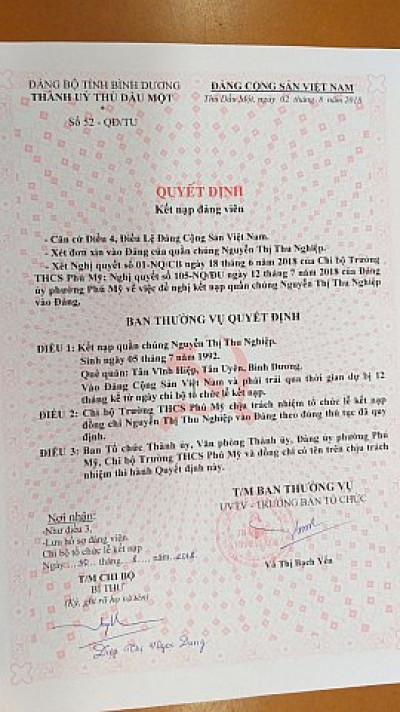 ĐẢNG BỘ TỈNH BÌNH DƯƠNG
THÀNH UỶ THỦ DẦU MỘT
*
Số 52 - QĐ/TU
ĐẢNG CỘNG SẢN VIỆT NAM
Thủ Dầu Một, ngày 02 tháng 8 năm 2018
QUYẾT ĐỊNH
Kết nạp đảng viên
- Căn cứ Điều 4, Điều Lệ Đảng Cộng Sản Việt Nam.
- Xét đơn xin vào Đảng của quần chúng Nguyễn Thị Thu Nghiệp.
- Xét Nghị quyết số 01-NQ/CB ngày 18 tháng 6 năm 2018 của Chi bộ Trường
THCS Phú Mỹ; Nghị quyết số 105-NQ/ĐU ngày 12 tháng 7 năm 2018 của Đảng
ủy phường Phú Mỹ về việc đề nghị kết nạp quần chúng Nguyễn Thị Thu Nghiệp
vào Đảng,
BAN THƯỜNG VỤ QUYẾT ĐỊNH
ĐIỀU 1: Kết nạp quần chúng Nguyễn Thị Thu Nghiệp.
Sinh ngày 05 tháng 7 năm 1992.
Quê quán: Tân Vĩnh Hiệp, Tân Uyên, Bình Dương.
Vào Đảng Cộng Sản Việt Nam và phải trải qua thời gian dự bị 12
tháng kể từ ngày chi bộ tổ chức lễ kết nạp.
ĐIỀU 2: Chi bộ Trường THCS Phú Mỹ chịu trách nhiệm tổ chức lễ kết nạp
đồng chí Nguyễn Thị Thu Nghiệp vào Đảng theo đúng thủ tục đã quy
định.
ĐIỀU 3: Ban Tổ chức Thành ủy, Văn phòng Thành ủy, Đảng ủy phường Phú
Mỹ, Chi bộ Trường THCS Phú Mỹ và đồng chí có tên trên chịu trách
nhiệm thi hành Quyết định này.
Nơi nhận:
-Như điều 3,
-Lưu hồ sơ đảng viên.
Chi bộ tổ chức lễ kết nạp
Ngày 30 tháng 8 năm 2018
T/M CHI BỘ
BÍ THƯ
(Ký, ghi rõ họ và tên)
Diệp Thị Ngọc Dung
T/M BAN THƯỜNG VỤ
UVTV - TRƯỞNG BAN TỔ CHỨC
Võ Thị Bạch Yến